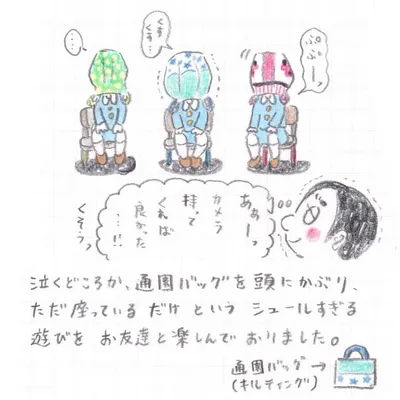 ……
くすくす…
ぷぷーッ
あぁーっ
カメラ
持って
くれば
良かった
…!!
くそうっ
泣くどころか、通園バッグを頭にかぶり、
ただ座っているだけという シュールすぎる
遊びを お友達と楽しんでおりました。
通園バッグ→
(キルティング)